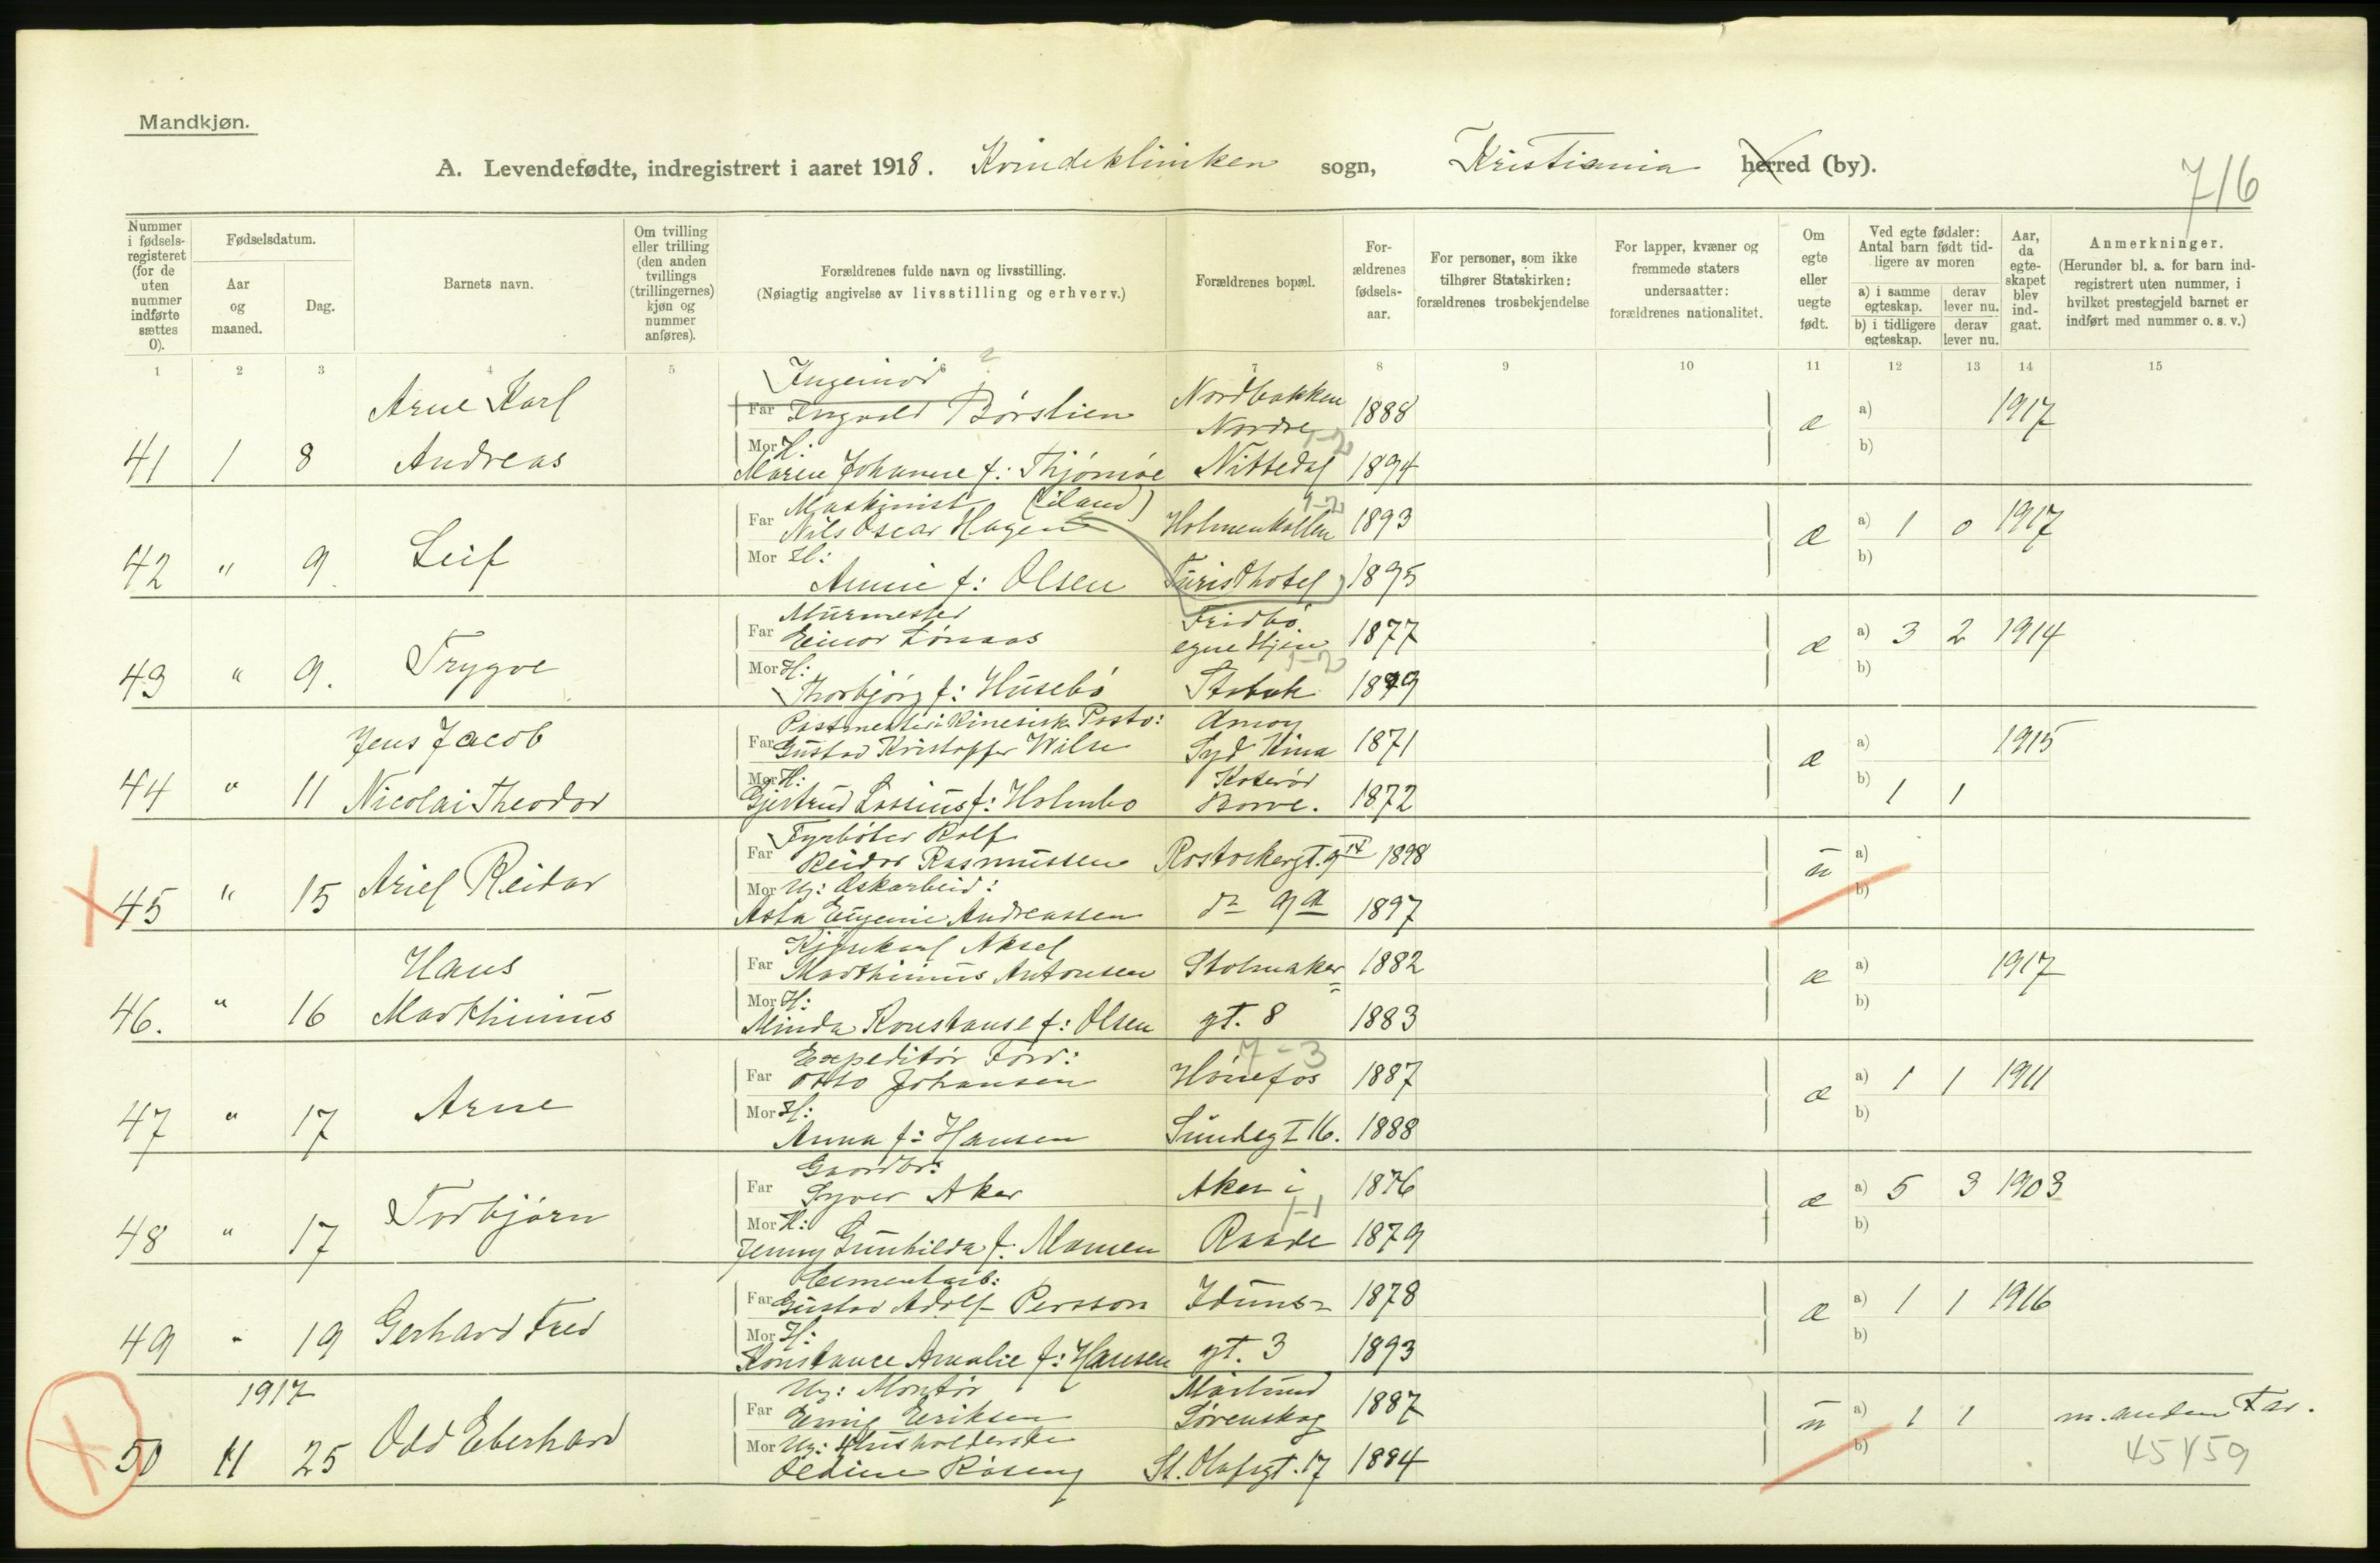 Mandkjøn.
A. Levendefødte, indregistrert i aaret 1918. Kvindeklinikken sogn, Kristiania herred (by).
716
Nummer i fødselsregisteret (for de uten nummer indførte sættes 0).
Fødselsdatum.
Aar og maaned.
Dag.
Barnets navn.
Om tvilling eller trilling (den anden tvillings (trillingernes) kjøn og nummer anføres).
Forældrenes fulde navn og livsstilling.
(Nøiagtig angivelse av livsstilling og erhverv.)
Forældrenes bopæl.
Forældrenes fødselsaar.
For personer, som ikke tilhører Statskirken: forældrenes trosbekjendelse
For lapper, kvæner og fremmede staters undersaatter: forældrenes nationalitet.
Om egte eller uegte født.
Ved egte fødsler: Antal barn født tidligere av moren
a) i samme egteskap.
derav lever nu.
b) i tidligere egteskap.
derav lever nu.
Aar, da egteskapet blev indgaat.
Anmerkninger.
(Herunder bl. a. for barn indregistrert uten nummer, i hvilket prestegjeld barnet er indført med nummer o. s. v.)
1 2 3 4 5 7 8 9 10 11 12 13 14 15
Ingeniør
Arne Karl Far Ingvald Børslien Nordbakken 1888 a) 1917
Nordre 1-2
41 1 8 Andreas Mor H: Maren Johanne f: Thjømøe Nittedal 1894 æ b)
Maskinist (iland) 1-2
Far Nils Oscar Hagen Holmenkollen 1893 a) 1 0 1917
42 " 9. Leif Mor H: Annie f: Olsen Turisthotel 1895 æ b)
Murmester Fridbo
Far Einar Lønaas egne Hjem 1877 a) 3 2 1914
43 " 9. Trygve Mor H: Thorbjørg f: Husebø Stabæk 1-2 1889 æ b)
Postmester i Kinesisk Postv: Amoy
Jens Jacob Far Gustav Kristoffer Wilse Syd Kina 1871 a) 1915
44 " 11 Nicolai Theodor Mor H: Gjertrud Lassius f: Holmbo Borre. 1872 æ b) 1 1
Fyrbøter Rolf
Far Reidar Rasmussen Rostockergt. 9 IV 1898 a)
45 " 15 Ariel Reidar Mor Ug: Eskarbeid: Asta Eugenie Andreassen do 9a 1897 u b)
Kjørekarl Aksel
Hans Far Marthinius Antonsen Stolmaker= 1882 a) 1917
46. " 16 Marthinius Mor H: Minda Konstanse f: Olsen gt. 8 1883 æ b)
Expeditør Ford: 7-3
Far Otto Johansen Hønefos 1887 a) 1 1 1911
47 " 17 Arne Mor H: Anna f: Hansen Sundegt 16. 1888 æ b)
Gaardbr:
Far Syver Aker Aker i 1876 a) 5 3 1903
1-1
48 " 17 Torbjørn Mor H: Jenny Gunhilda f: Momen Raade 1879 æ b)
Cementarb:
Far Gustav Adolf Persson Iduns= 1878 a) 1 1 1916
49 " 19 Gerhard Fred Mor H: Konstance Amalie f: Hansen gt. 3 1893 æ b)
1917 Ug: Montør
Far Emig Eriksen Lørenskog 1887 a) 1 1 m. anden Far.
50 11 25 Odd Eberhard Mor Ug: Husholderske Oldine Røseng St. Olafsgt. 17 1884 u b) 45159